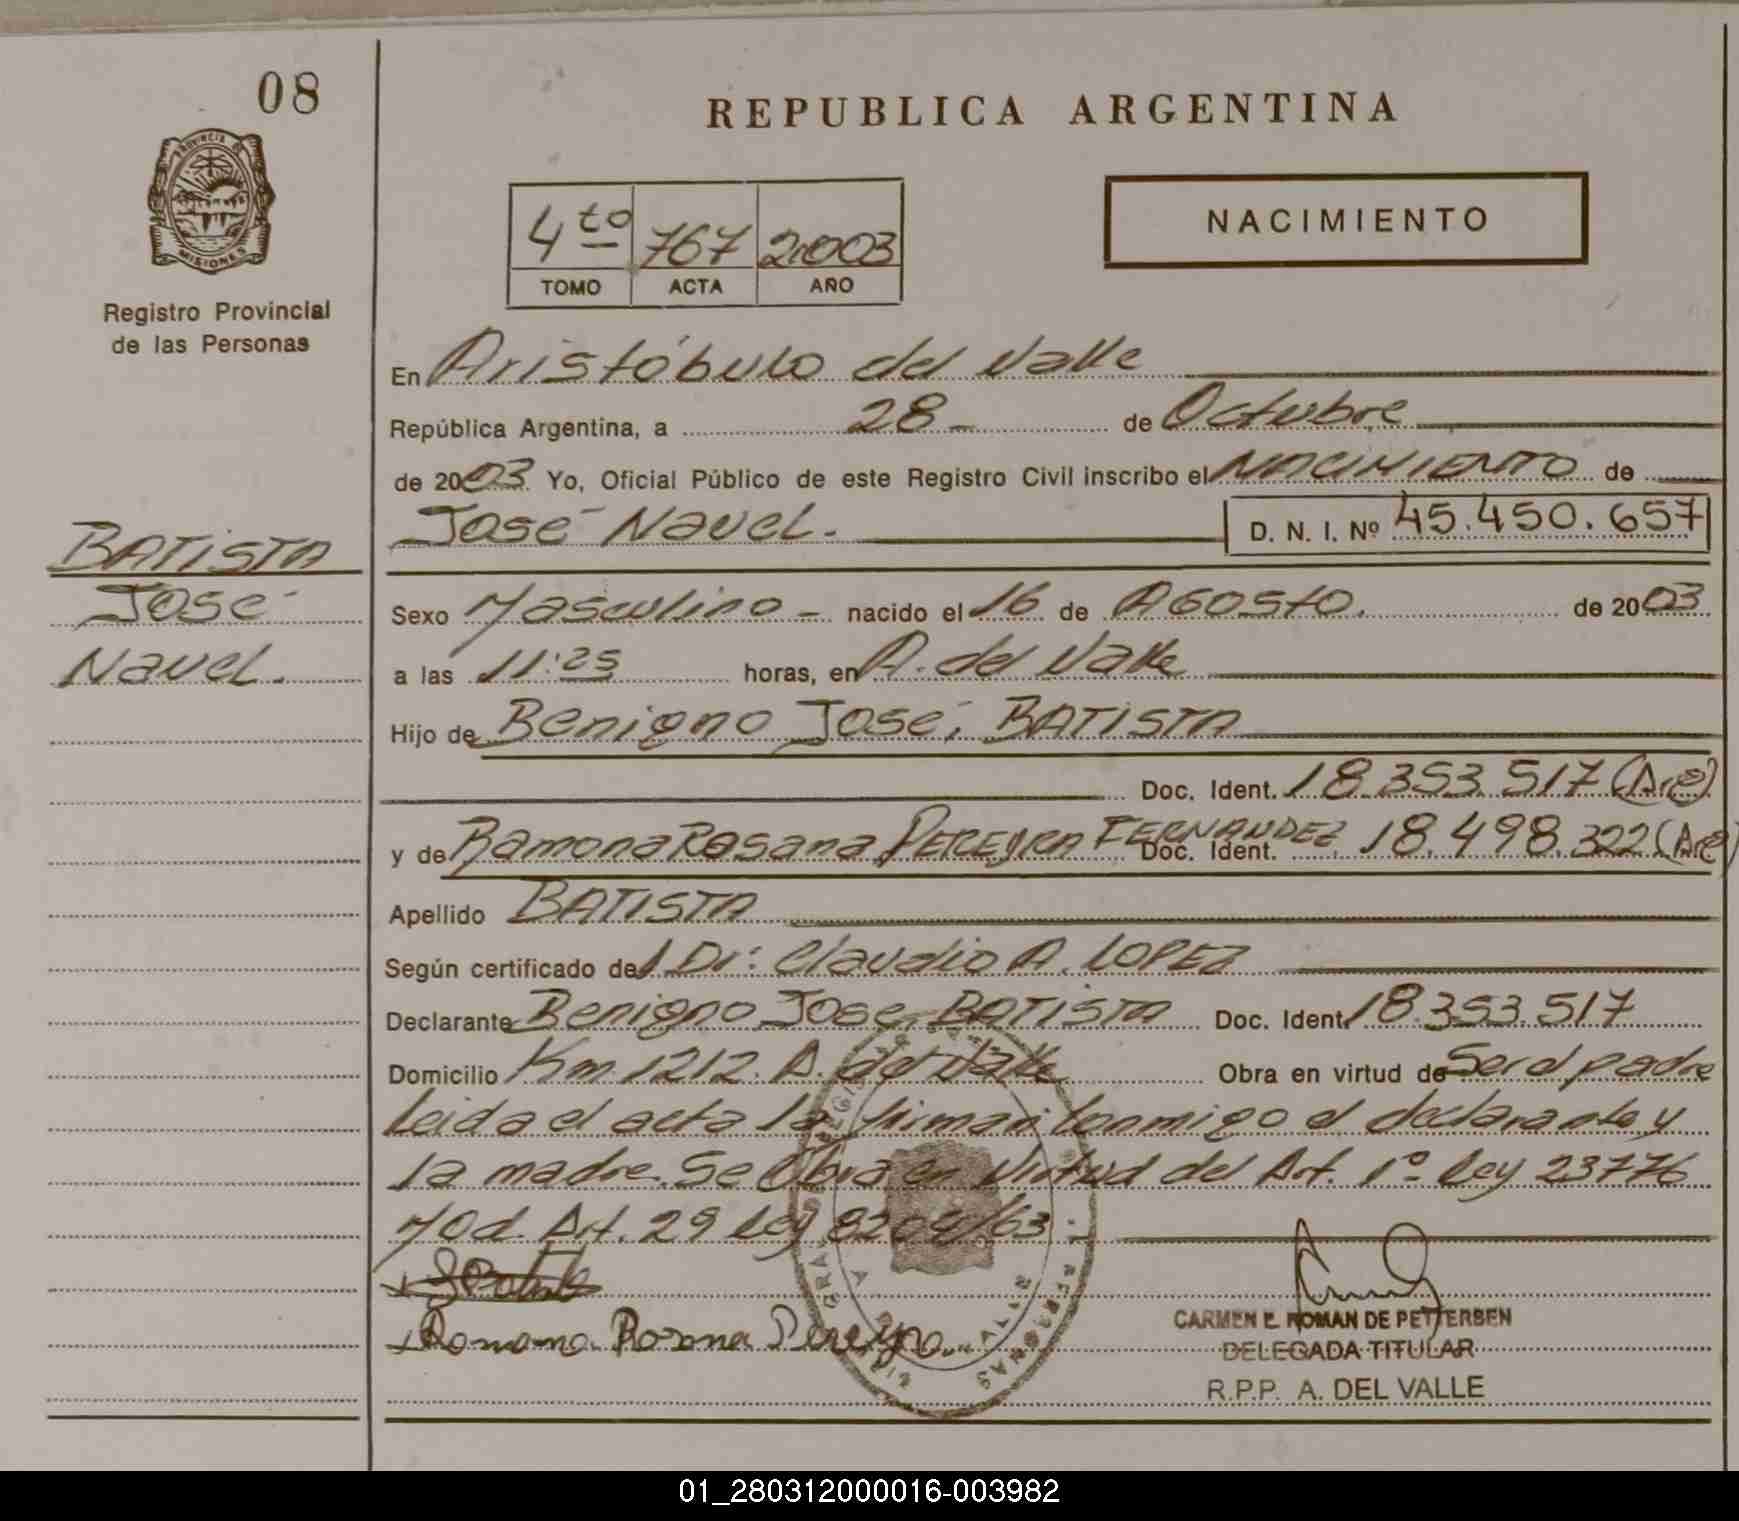 08
REPUBLICA ARGENTINA
PROVINCIA DE
MISIONES
Registro Provincial
de las Personas
4to 767 2003
TOMO ACTA AÑO
NACIMIENTO
En Aristóbulo del Valle
República Argentina, a 28 de Octubre
de 2003 Yo, Oficial Público de este Registro Civil inscribo el NACIMIENTO de
José Nauel. D. N. I. Nº 45.450.657
BATISTA
José
Nauel.
Sexo Masculino - nacido el 16 de AGOSTO. de 2003
a las 11:25 horas, en A. del Valle
Hijo de Benigno José, BATISTA
Doc. Ident. 18.353.517 (Arg)
y de Ramona Rosana PEREYRA FERNANDEZ Doc. Ident. 18.498.322 (Arg)
Apellido BATISTA
Según certificado del Dr: Claudio A. LOPEZ
Declarante Benigno José, BATISTA Doc. Ident. 18.353.517
Domicilio Km. 1212. A. del Valle Obra en virtud de Ser el padre
Leida el acta la firman conmigo el declarante y
la madre. Se Obra en Virtud del Art. 1º Ley 23776
Mod. Art. 29 Ley 8204/63
Ramona Rosana Pereyra
CARMEN E. ROMAN DE PETTERSEN
DELEGADA TITULAR
R.P.P. A. DEL VALLE
01_280312000016-003982